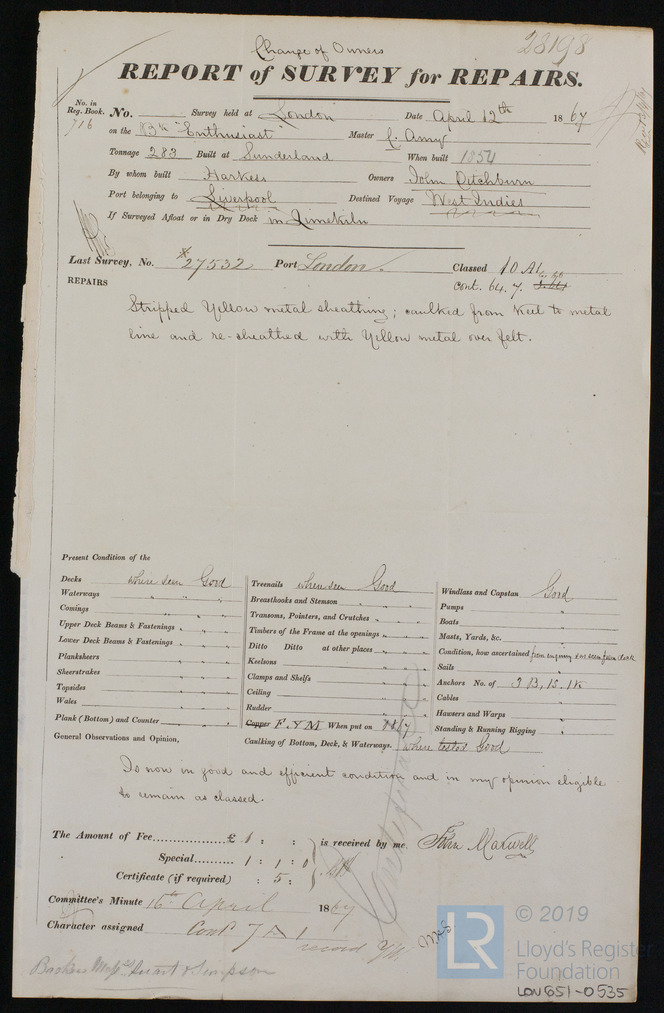 28198
Change of Owners
REPORT of SURVEY for REPAIRS.
No. in Reg. Book. 716
No. Survey held at London Date April 12th 1867
on the Bk "Enthusiast" Master C. Amy
Tonnage 283 Built at Sunderland When built 1854
By whom built Harkess Owners John Ditchburn
Port belonging to Liverpool Destined Voyage West Indies
If Surveyed Afloat or in Dry Dock in Limekiln
Last Survey, No. *27532 Port London. Classed 10 A1
cont. 64. 7.
REPAIRS
Stripped Yellow metal sheathing; caulked from Keel to metal
line and re-sheathed with Yellow metal over felt.
Present Condition of the
Decks where seen Good
Waterways " " "
Comings " " "
Upper Deck Beams & Fastenings " " "
Lower Deck Beams & Fastenings " " "
Planksheers " "
Sheerstrakes " "
Topsides " "
Wales " "
Plank (Bottom) and Counter "
Treenails where seen Good
Breasthooks and Stemson " "
Transoms, Pointers, and Crutches " "
Timbers of the Frame at the openings " "
Ditto Ditto at other places " "
Keelsons " "
Clamps and Shelfs " "
Ceiling " "
Rudder " "
Copper F & YM When put on 1867
Caulking of Bottom, Deck, & Waterways. where tested Good
Windlass and Capstan Good
Pumps "
Boats "
Masts, Yards, &c. "
Condition, how ascertained from enquiry and seen from deck
Sails "
Anchors No. of 3 B, 1 S, 1 K
Cables "
Hawsers and Warps "
Standing & Running Rigging "
General Observations and Opinion,
Is now in good and efficient condition and in my opinion eligible
to remain as classed.
The Amount of Fee £ 1 : : is received by me, John Maxwell
Special 1 : 1 : 0
Certificate (if required) : 5 :
Committee's Minute 16th April 1867
Character assigned Cont 7 A 1
record YM
© 2019
Lloyd's Register
Foundation
LR
LON651-0535